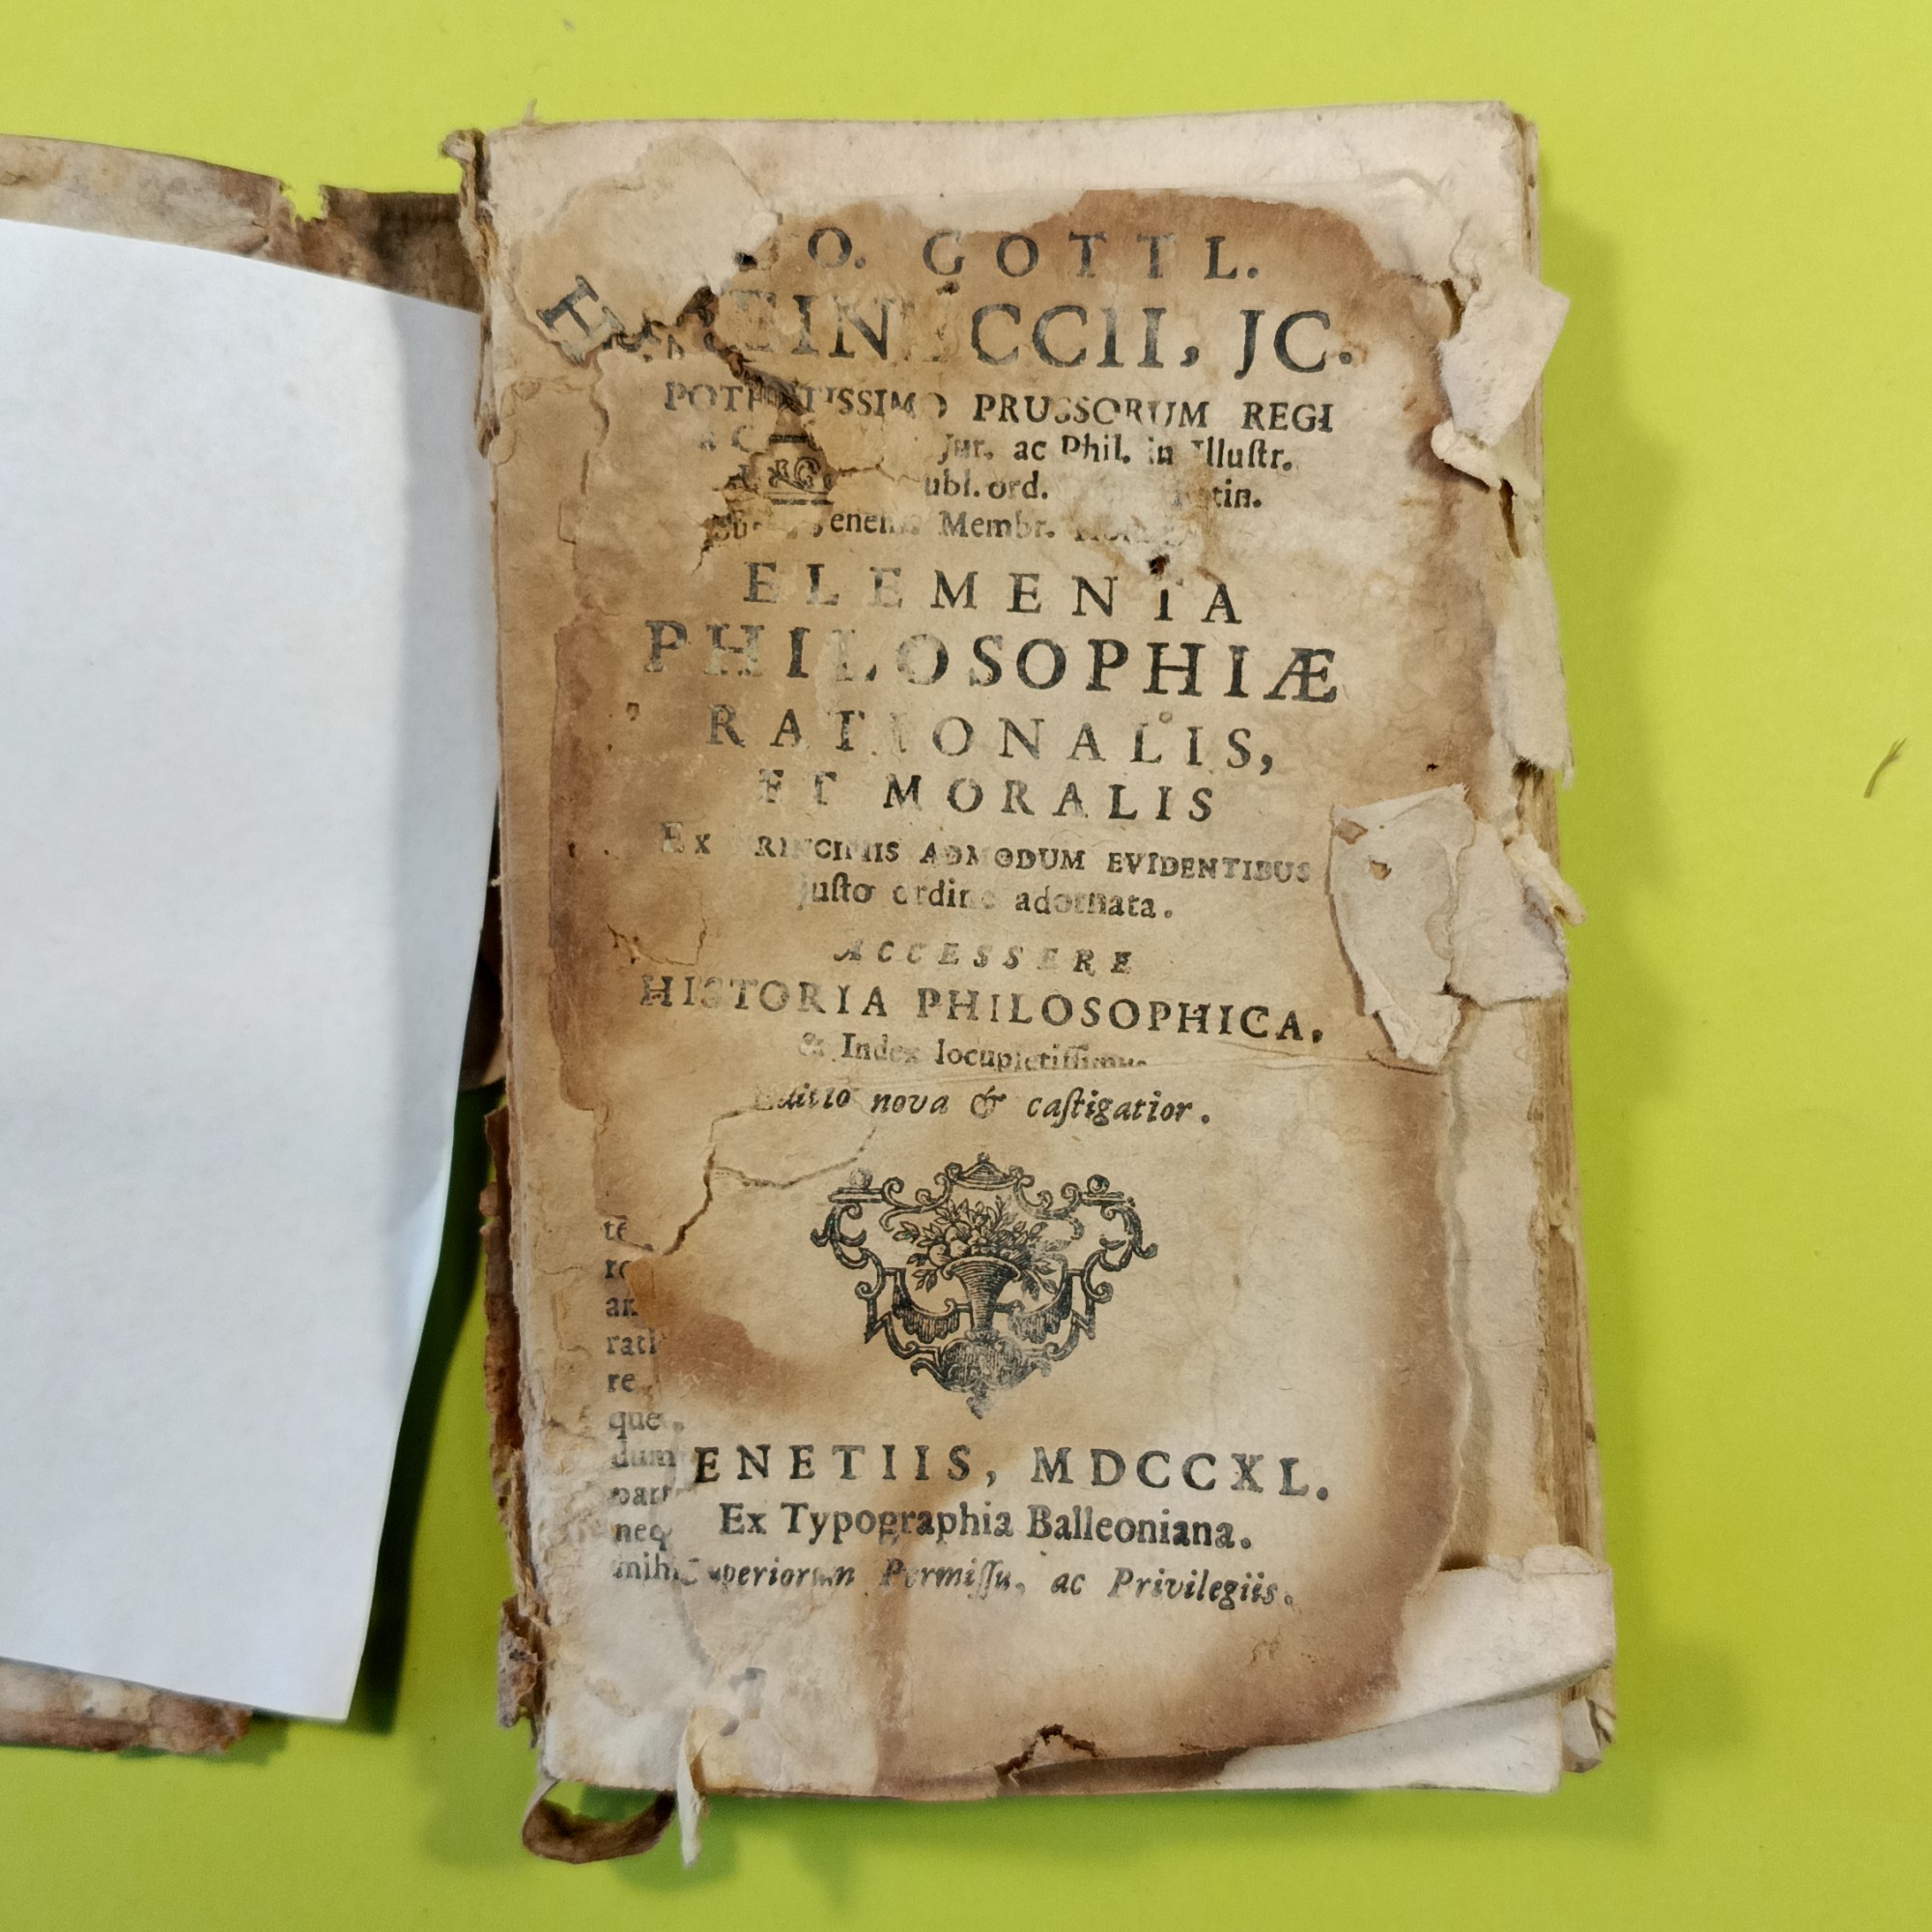 O. GOTTL.
HEINECCII, JC.
POTENTISSIMO PRUSSORUM REGI
Jur. ac Phil. in Illustr.
ubl. ord.
Membr.
ELEMENTA
PHILOSOPHIÆ
RATIONALIS,
ET MORALIS
EX PRINCIPIIS ADMODUM EVIDENTIBUS
juſto ordine adornata.
ACCESSERE
HISTORIA PHILOSOPHICA.
& Index locupletiſſimus
Editio nova & caſtigatior.
re
que
dum
neq
ENETIIS, MDCCXL.
Ex Typographia Balleoniana.
Superiorum Permiſſu, ac Privilegiis.